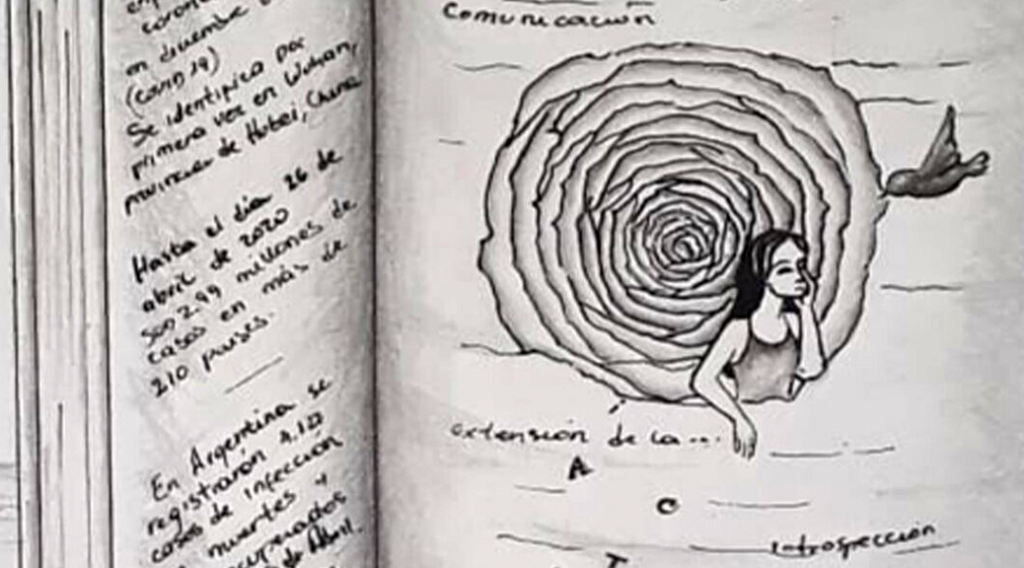 corona
en diciembre
(covid 19)
Se identifica por
primera vez en Wuhan,
provincia de Hubei, China
Hasta el día 26 de
abril de 2020
son 2.99 millones de
casos en más de
210 países.
En Argentina se
registrarón 4.127
casos de infección
muertes y
recuperados
de Abril.
comunicación
extensión de la...
A
C
T
introspección